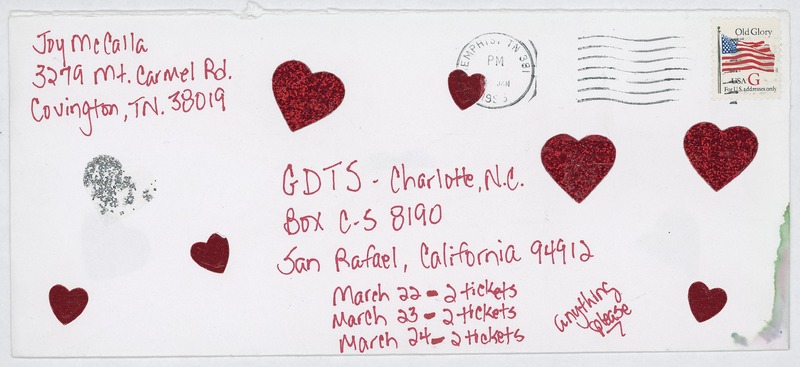 Joy McCalla
3279 Mt. Carmel Rd.
Covington, TN. 38019
MEMPHIS, TN 381
PM
JAN
Old Glory
USA G
For U.S. addresses only
GDTS - Charlotte, N.C.
Box C-S 8190
San Rafael, California 94912
March 22 - 2 tickets
March 23 - 2 tickets
March 24 - 2 tickets
anything
please